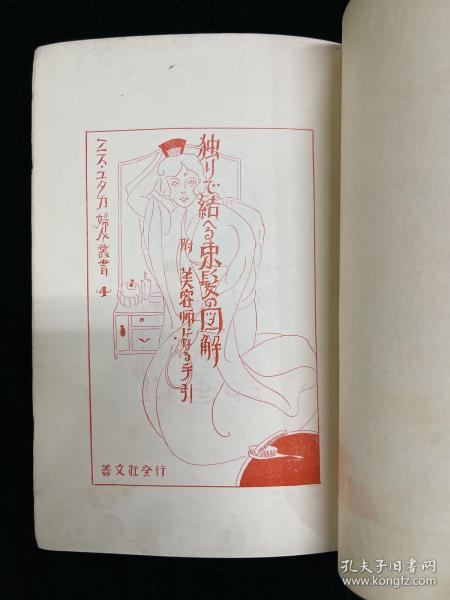 独りで結へる束髪の図解
附 美容師になる手引
ミス・ユタカ婦人叢書 4
善文社発行
孔夫子旧书网
www.kongfz.com